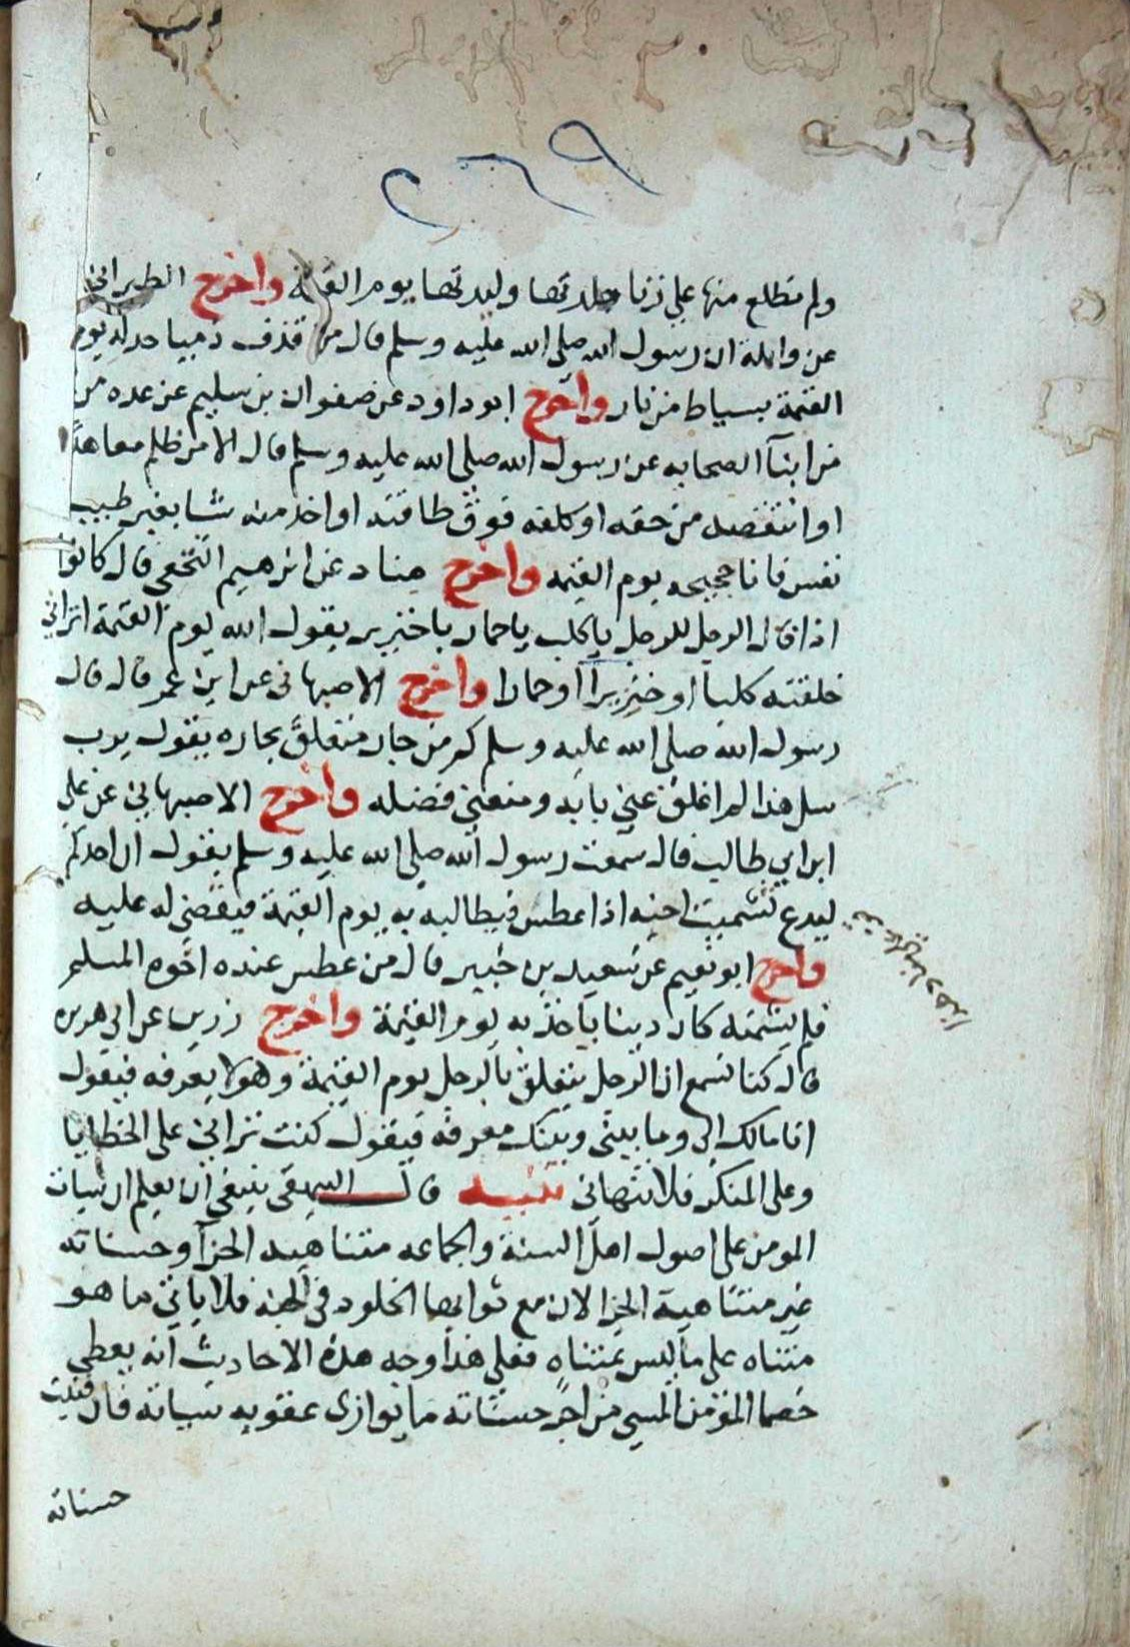 ٢٦٩
ولم تطلع منها علي زنا جلدتها وليدتها يوم القيمة واخرج الطبراني
عن واثلة ان رسول الله صلى الله عليه وسلم قال من قذف ذميا حد له يوم
القيمة بسياط من نار واخرج ابوداود عن صفوان بن سليم عن عده من
من ابنآ الصحابه عن رسول الله صلى الله عليه وسلم قال الا من ظلم معاهدًا
او انتقصه من حقه او كلفه فوق طاقته او اخد منه شا بغير طيب
نفس فانا حجيجه يوم القيمه واخرج هناد عن ابرهيم النخعي قال كانوا
اذا قال الرجل للرجل ياكلب ياحمار ياخنزير يقول الله يوم القيمة اتراني
خلقته كلبا او خنزيرا او حمارا واخرج الاصبهاني عن ابن عمر قال قال
رسول الله صلى الله عليه وسلم كم من جار متعلق بجاره يقول يرب
سل هذا لم اغلق عني بابه ومنعني فضله واخرج الاصبهاني عن علي
ابن ابي طالب قال سمعت رسول الله صلى الله عليه وسلم يقول ان احدكم
ليدع تشميت اخيه اذا عطس فيطالبه به يوم القيمة فيقضي له عليه
واخرج ابو نعيم عن سعيد بن جبير قال من عطس عنده اخوه المسلم
فلم يشمته كان دينا ياخذ به يوم القيمة واخرج زرين عن ابي هريره
قال كنا نسمع ان الرجل يتعلق بالرجل يوم القيمة وهو لا يعرفه فيقول
انا مالك الي وما بيني وبينك معرفه فيقول كنت تراني على الخطايا
وعلى المنكر فلا تنهاني تنبيه قال البيهقي ينبغي ان يعلم ان سيات
المومن على اصول اهل السنة والجماعه متناهيه الجزآ وحسناته
غير متناهية الجزا لان مع ثوابها الخلود في الجنه فلا ياتي ما هو
متناه علي ما ليس بمتناه فعلي هذا وجه هذه الاحاديث انه يعطي
خصما المؤمن المسي من اجر حسناته ما يوازى عقوبه سياته فان فنيت
حسناته